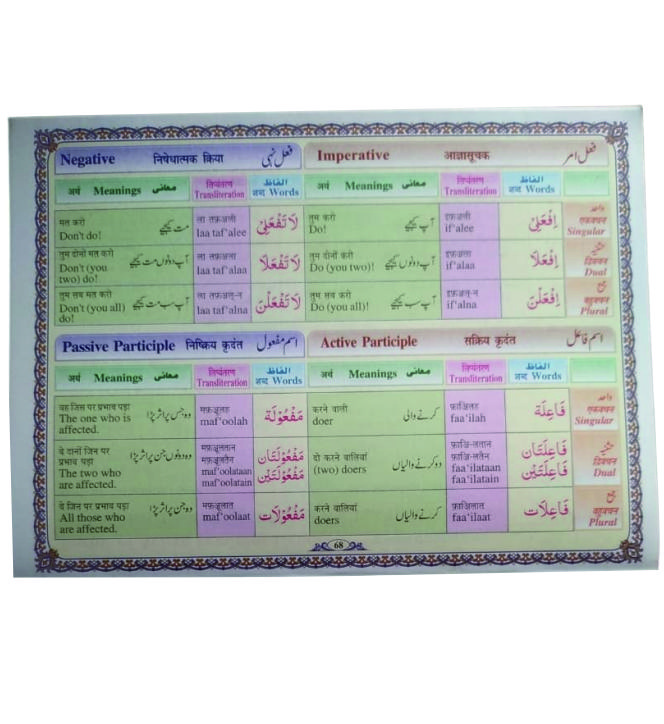 Negative निषेधात्मक क्रिया فعل نہی
Imperative आज्ञासूचक فعل امر
अर्थ Meanings معانی लिप्यंतरण Transliteration الفاظ शब्द Words
अर्थ Meanings معانی लिप्यंतरण Transliteration الفاظ शब्द Words
मत करो
Don't do!
مت کیجیے
ला तफ़अली
laa taf'alee
لَا تَفْعَلِيْ
तुम करो
Do!
آپ کیجیے
इफ़अली
if'alee
اِفْعَلِيْ
واحد
एकवचन
Singular
तुम दोनों मत करो
Don't (you
two) do!
آپ دونوں مت کیجیے
ला तफ़अला
laa taf'alaa
لَا تَفْعَلَا
तुम दोनों करो
Do (you two)!
آپ دونوں کیجیے
इफ़अला
if'alaa
اِفْعَلَا
تثنیہ
द्विवचन
Dual
तुम सब मत करो
Don't (you all)
do!
آپ سب مت کیجیے
ला तफ़अल्-न
laa taf'alna
لَا تَفْعَلْنَ
तुम सब करो
Do (you all)!
آپ سب کیجیے
इफ़अल्-न
if'alna
اِفْعَلْنَ
جمع
बहुवचन
Plural
Passive Participle निष्क्रिय कृदंत اسم مفعول
Active Participle सक्रिय कृदंत اسم فاعل
अर्थ Meanings معانی लिप्यंतरण Transliteration الفاظ शब्द Words
अर्थ Meanings معانی लिप्यंतरण Transliteration الفاظ शब्द Words
वह जिस पर प्रभाव पड़ा
The one who is
affected.
وہ جس پر اثر پڑا
मफ़ऊलह
maf'oolah
مَفْعُوْلَة
करने वाली
doer
کرنے والی
फ़ाइलह
faa'ilah
فَاعِلَة
واحد
एकवचन
Singular
वे दोनों जिन पर
प्रभाव पड़ा
The two who
are affected.
وہ دونوں جن پر اثر پڑا
मफ़ऊलतान
मफ़ऊलतैन
maf'oolataan
maf'oolatain
مَفْعُوْلَتَان
مَفْعُوْلَتَيْن
दो करने वालियां
(two) doers
دو کرنے والیاں
फ़ाइ-लतान
फ़ाइ-लतैन
faa'ilataan
faa'ilatain
فَاعِلَتَان
فَاعِلَتَيْن
تثنیہ
द्विवचन
Dual
वे जिन पर प्रभाव पड़ा
All those who
are affected.
وہ جن پر اثر پڑا
मफ़ऊलात
maf'oolaat
مَفْعُوْلَات
करने वालियां
doers
کرنے والیاں
फ़ाइलात
faa'ilaat
فَاعِلَات
جمع
बहुवचन
Plural
68